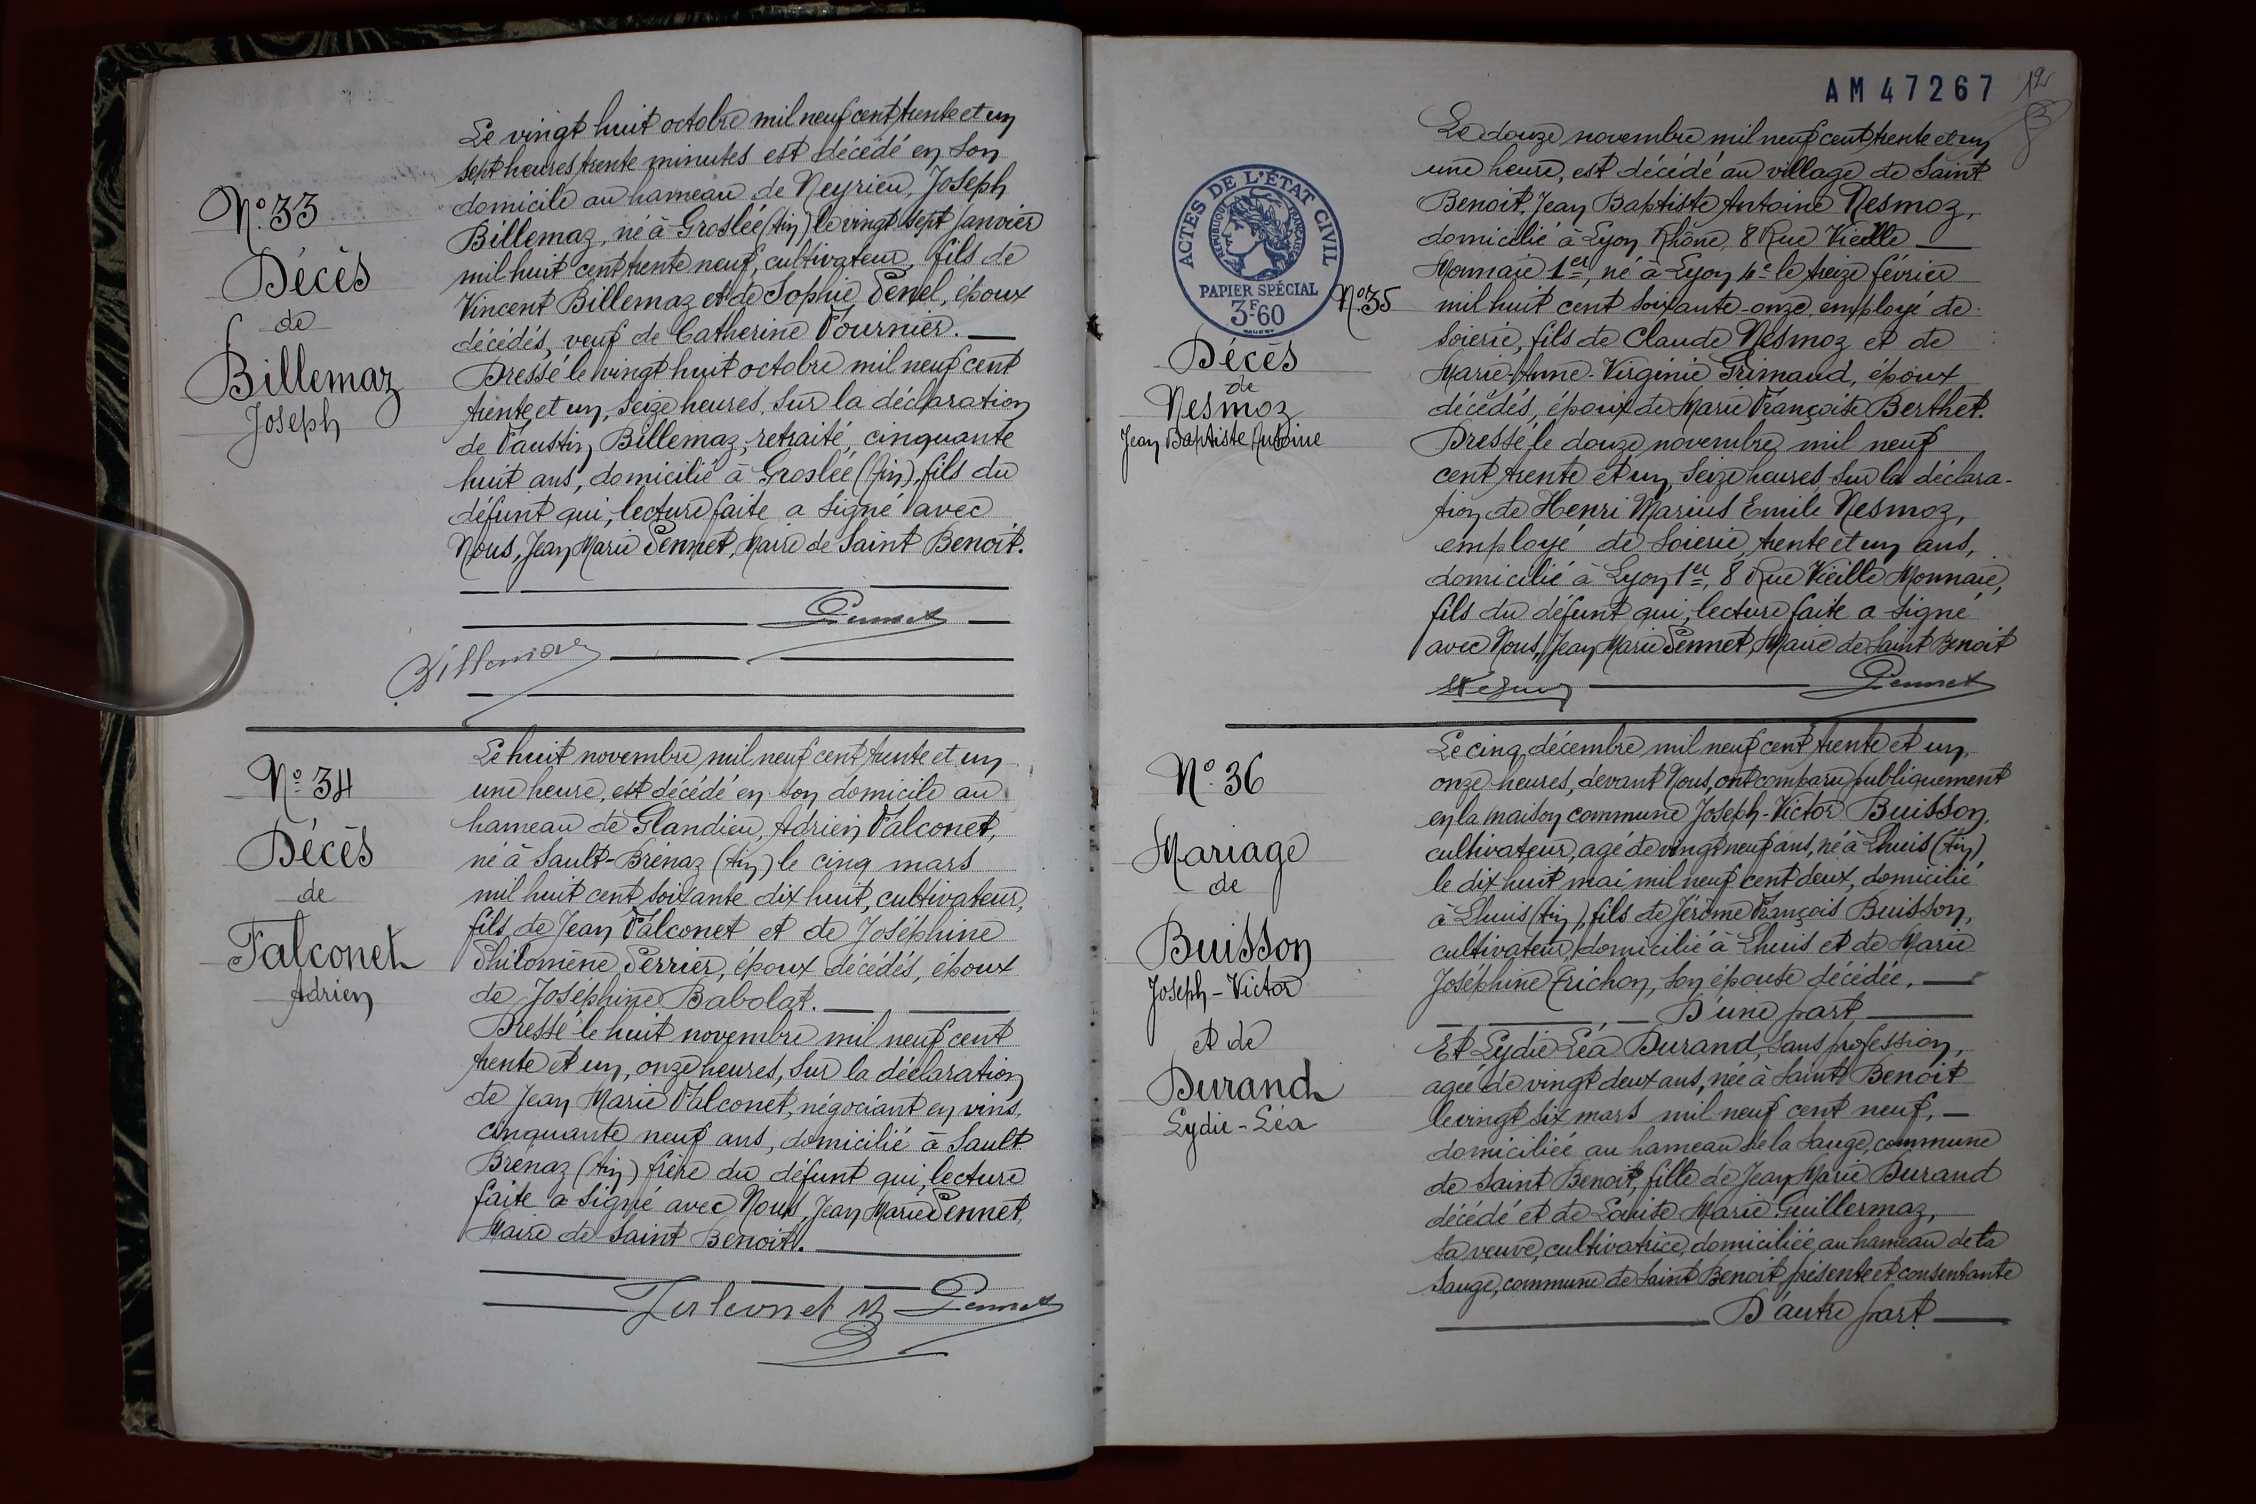 N° 33
Décès
de
Billemaz
Joseph
Le vingt huit octobre mil neuf cent trente et un
sept heures trente minutes est décédé en son
domicile au hameau de Neyrieu, Joseph
Billemaz, né à Groslée (Ain) le vingt sept janvier
mil huit cent trente neuf, cultivateur, fils de
Vincent Billemaz et de Sophie Penel, époux
décédés, veuf de Catherine Fournier.
Dressé le vingt huit octobre mil neuf cent
trente et un, seize heures, sur la déclaration
de Faustin Billemaz, retraité, cinquante
huit ans, domicilié à Groslée (Ain), fils du
défunt qui, lecture faite a signé avec
Nous, Jean Marie Pennet, Maire de Saint Benoit.
Pennet
Billemaz
N° 34
Décès
de
Falconet
Adrien
Le huit novembre mil neuf cent trente et un
une heure, est décédé en son domicile au
hameau de Glandieu, Adrien Falconet,
né à Sault-Brénaz (Ain) le cinq mars
mil huit cent soixante dix huit, cultivateur,
fils de Jean Falconet et de Joséphine
Philomène Perrier, époux décédés, époux
de Joséphine Babolat.
Dressé le huit novembre mil neuf cent
trente et un, onze heures, sur la déclaration
de Jean Marie Falconet, négociant en vins,
cinquante neuf ans, domicilié à Sault
Brénaz (Ain) frère du défunt qui, lecture
faite a signé avec Nous, Jean Marie Pennet,
Maire de Saint Benoit.
Falconet Pennet
AM 47267
12
ACTES DE L'ÉTAT CIVIL
RÉPUBLIQUE FRANÇAISE
PAPIER SPÉCIAL
3F.60
N° 35
Décès
de
Nesmoz
Jean Baptiste Antoine
Le douze novembre mil neuf cent trente et un
une heure, est décédé au village de Saint
Benoit, Jean Baptiste Antoine Nesmoz,
domicilié à Lyon Rhône, 8 Rue Vieille
Monnaie 1er, né à Lyon 4e le treize février
mil huit cent soixante-onze, employé de
soierie, fils de Claude Nesmoz et de
Marie-Anne-Virginie Grimaud, époux
décédés, époux de Marie Françoise Berthet.
Dressé le douze novembre mil neuf
cent trente et un, seize heures sur la déclara-
tion de Henri Marius Emile Nesmoz,
employé de soierie, trente et un ans,
domicilié à Lyon 1er, 8 Rue Vieille Monnaie,
fils du défunt qui, lecture faite a signé
avec Nous, Jean Marie Pennet, Maire de Saint Benoit
Pennet
N° 36
Mariage
de
Buisson
Joseph-Victor
et de
Durand
Lydie-Léa
Le cinq décembre mil neuf cent trente et un,
onze heures, devant Nous, ont comparu publiquement
en la maison commune Joseph-Victor Buisson,
cultivateur, agé de vingt neuf ans, né à Lhuis (Ain)
le dix huit mai mil neuf cent deux, domicilié
à Lhuis (Ain), fils de Jérôme François Buisson,
cultivateur, domicilié à Lhuis et de Marie
Joséphine Trichon, son épouse décédée,
D'une part,
Et Lydie Léa Durand, sans profession,
agée de vingt deux ans, née à Saint Benoit
le vingt six mars mil neuf cent neuf,
domiciliée au hameau de la Sauge, commune
de Saint Benoit, fille de Jean Marie Durand
décédé et de Louise Marie Guillermaz,
sa veuve, cultivatrice, domiciliée au hameau de la
Sauge, commune de Saint Benoit, présente et consentante
D'autre part.